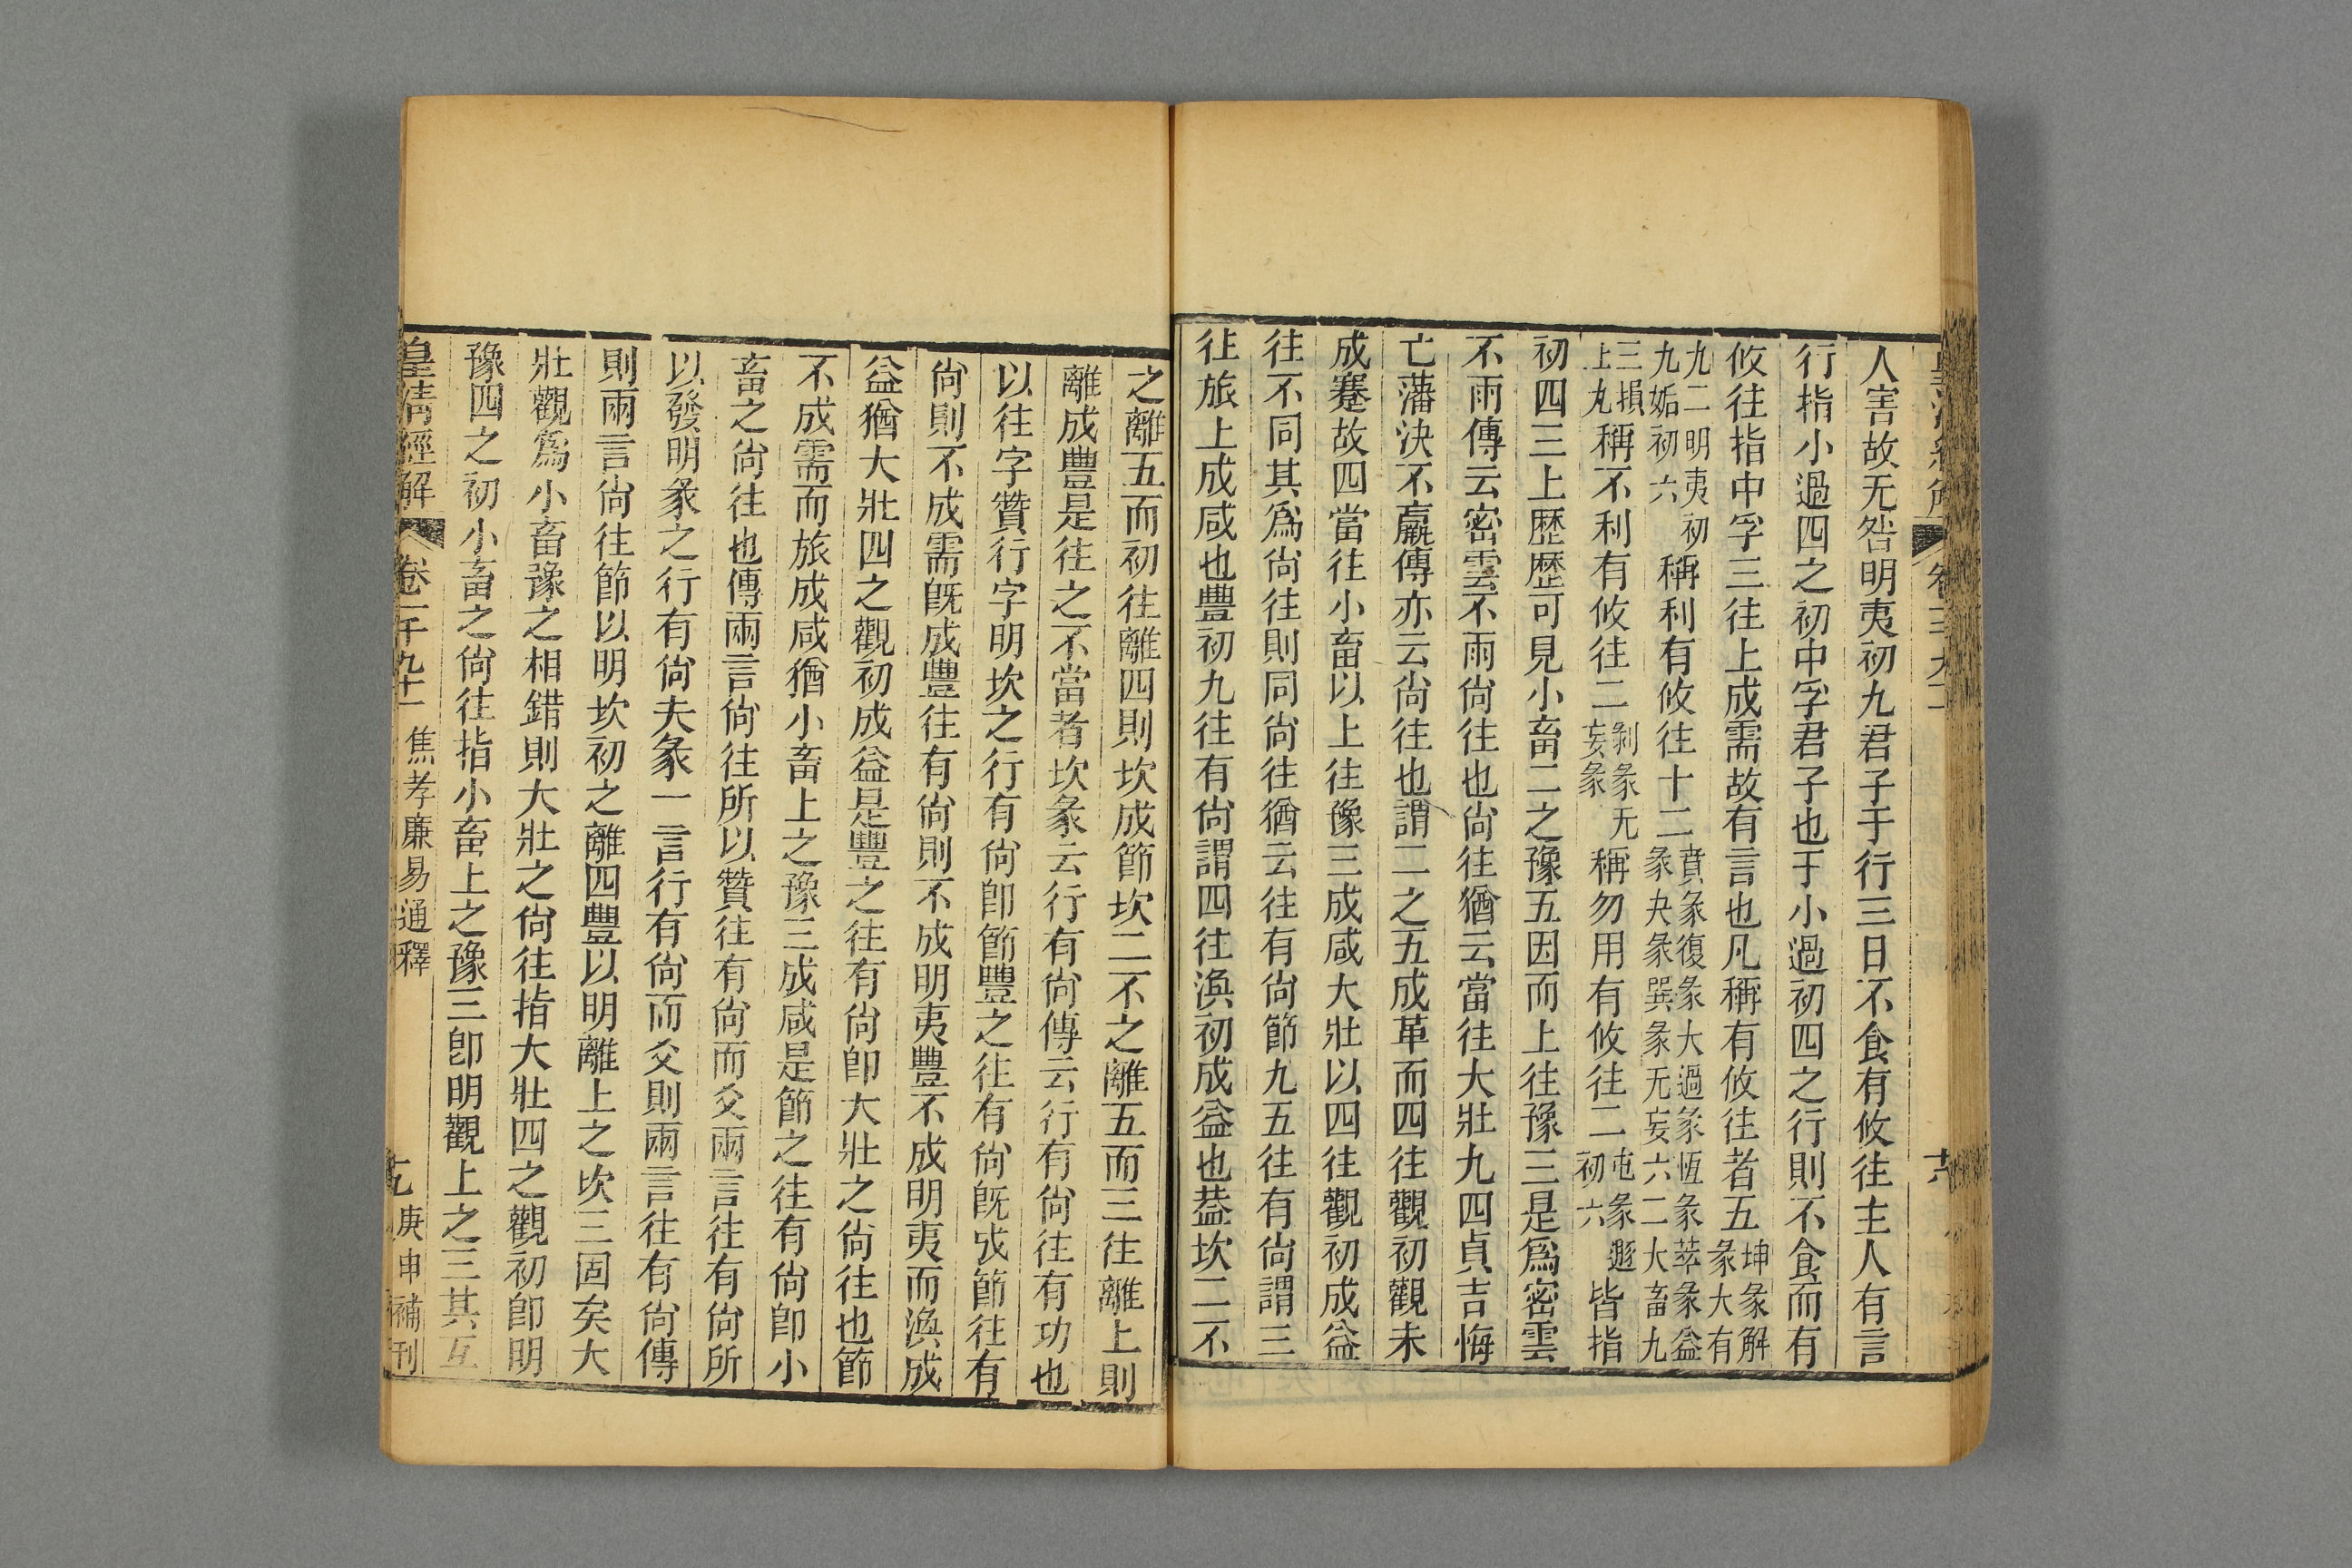 人害故无咎明夷初九君子于行三日不食有攸往主人有言
行指小過四之初中孚君子也于小過初四之行則不食而有
攸往指中孚三往上成需故有言也凡稱有攸往者五坤彖解彖大有
九二明夷初九姤初六稱利有攸往十二賁彖復彖大過彖恆彖萃彖益彖夬彖巽彖无妄六二大畜九
三損上九稱不利有攸往二剝彖无妄彖稱勿用有攸往二屯彖遯初六皆指
初四三上歷歷可見小畜二之豫五因而上往豫三是爲密雲
不雨傳云密雲不雨尙往也尙往猶云當往大壯九四貞吉悔
亡藩決不羸傳亦云尙往也謂二之五成革而四往觀初觀未
成蹇故四當往小畜以上往豫三成咸大壯以四往觀初成益
往不同其爲尙往則同尙往猶云往有尙節九五往有尙謂三
往旅上成咸也豐初九往有尙謂四往渙初成益也葢坎二不
之離五而初往離四則坎成節坎二不之離五而三往離上則
離成豐是往之不當者坎彖云行有尙傳云行有尙往有功也
以往字贊行字明坎之行有尙卽節豐之往有尙旣成節往有
尙則不成需旣成豐往有尙則不成明夷豐不成明夷而渙成
益猶大壯四之觀初成益是豐之往有尙卽大壯之尙往也節
不成需而旅成咸猶小畜上之豫三成咸是節之往有尙卽小
畜之尙往也傳兩言尙往所以贊往有尙而爻兩言往有尙所
以發明彖之行有尙夫彖一言行有尙而爻則兩言往有尙傳
則兩言尙往節以明坎初之離四豐以明離上之坎三固矣大
壯觀爲小畜豫之相錯則大壯之尙往指大壯四之觀初卽明
豫四之初小畜之尙往指小畜上之豫三卽明觀上之三其互
皇淸經解 卷一千九十一 焦孝廉易通釋 庚申補刊